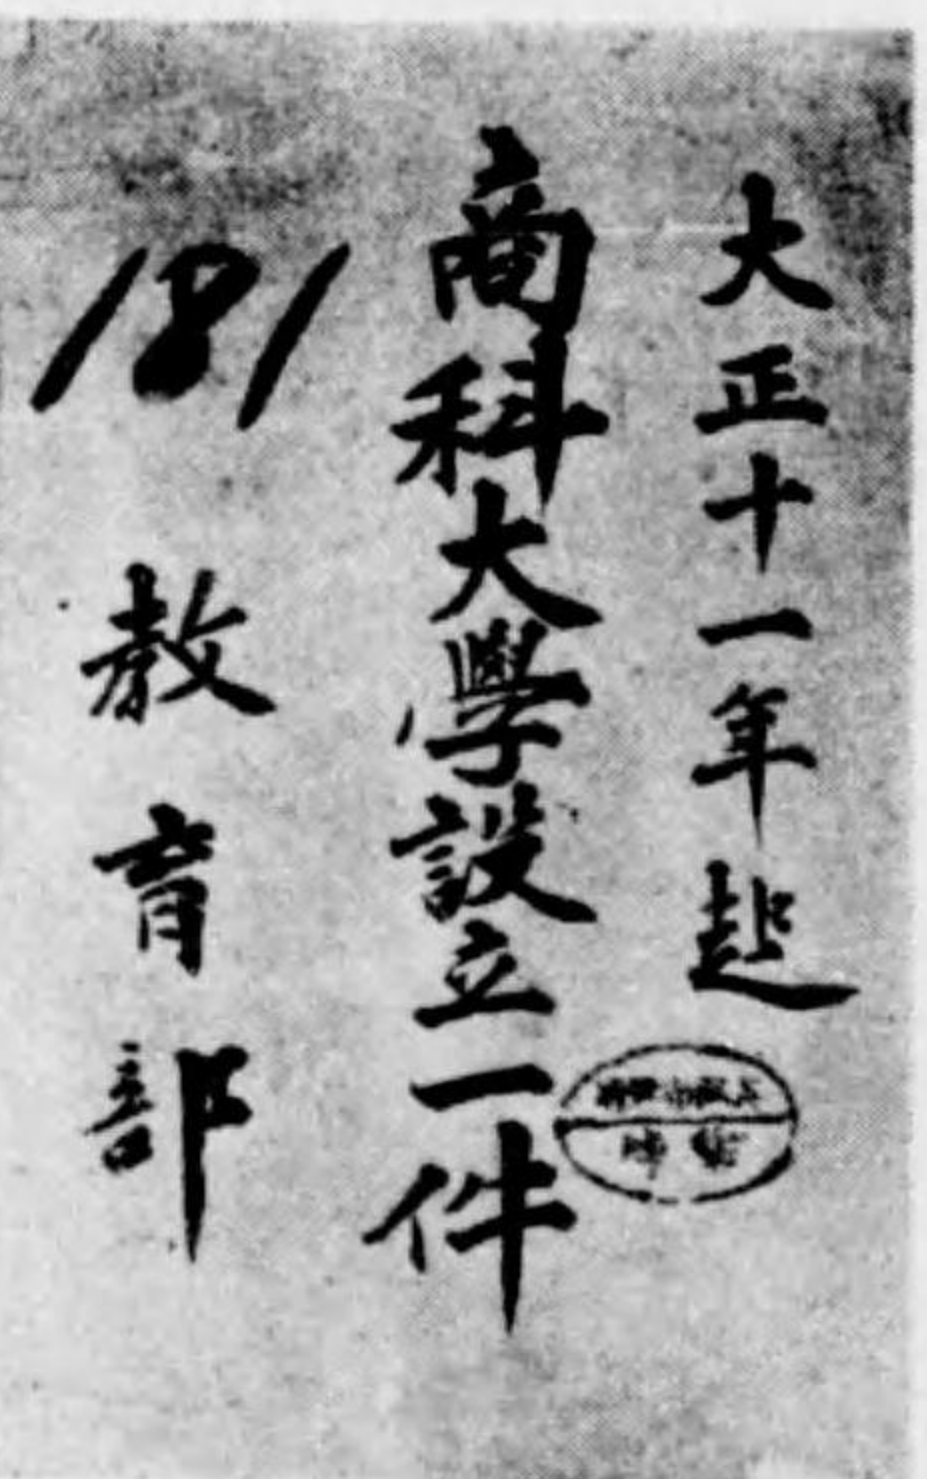 大正十一年起
商科大學設立一件
181
教育部